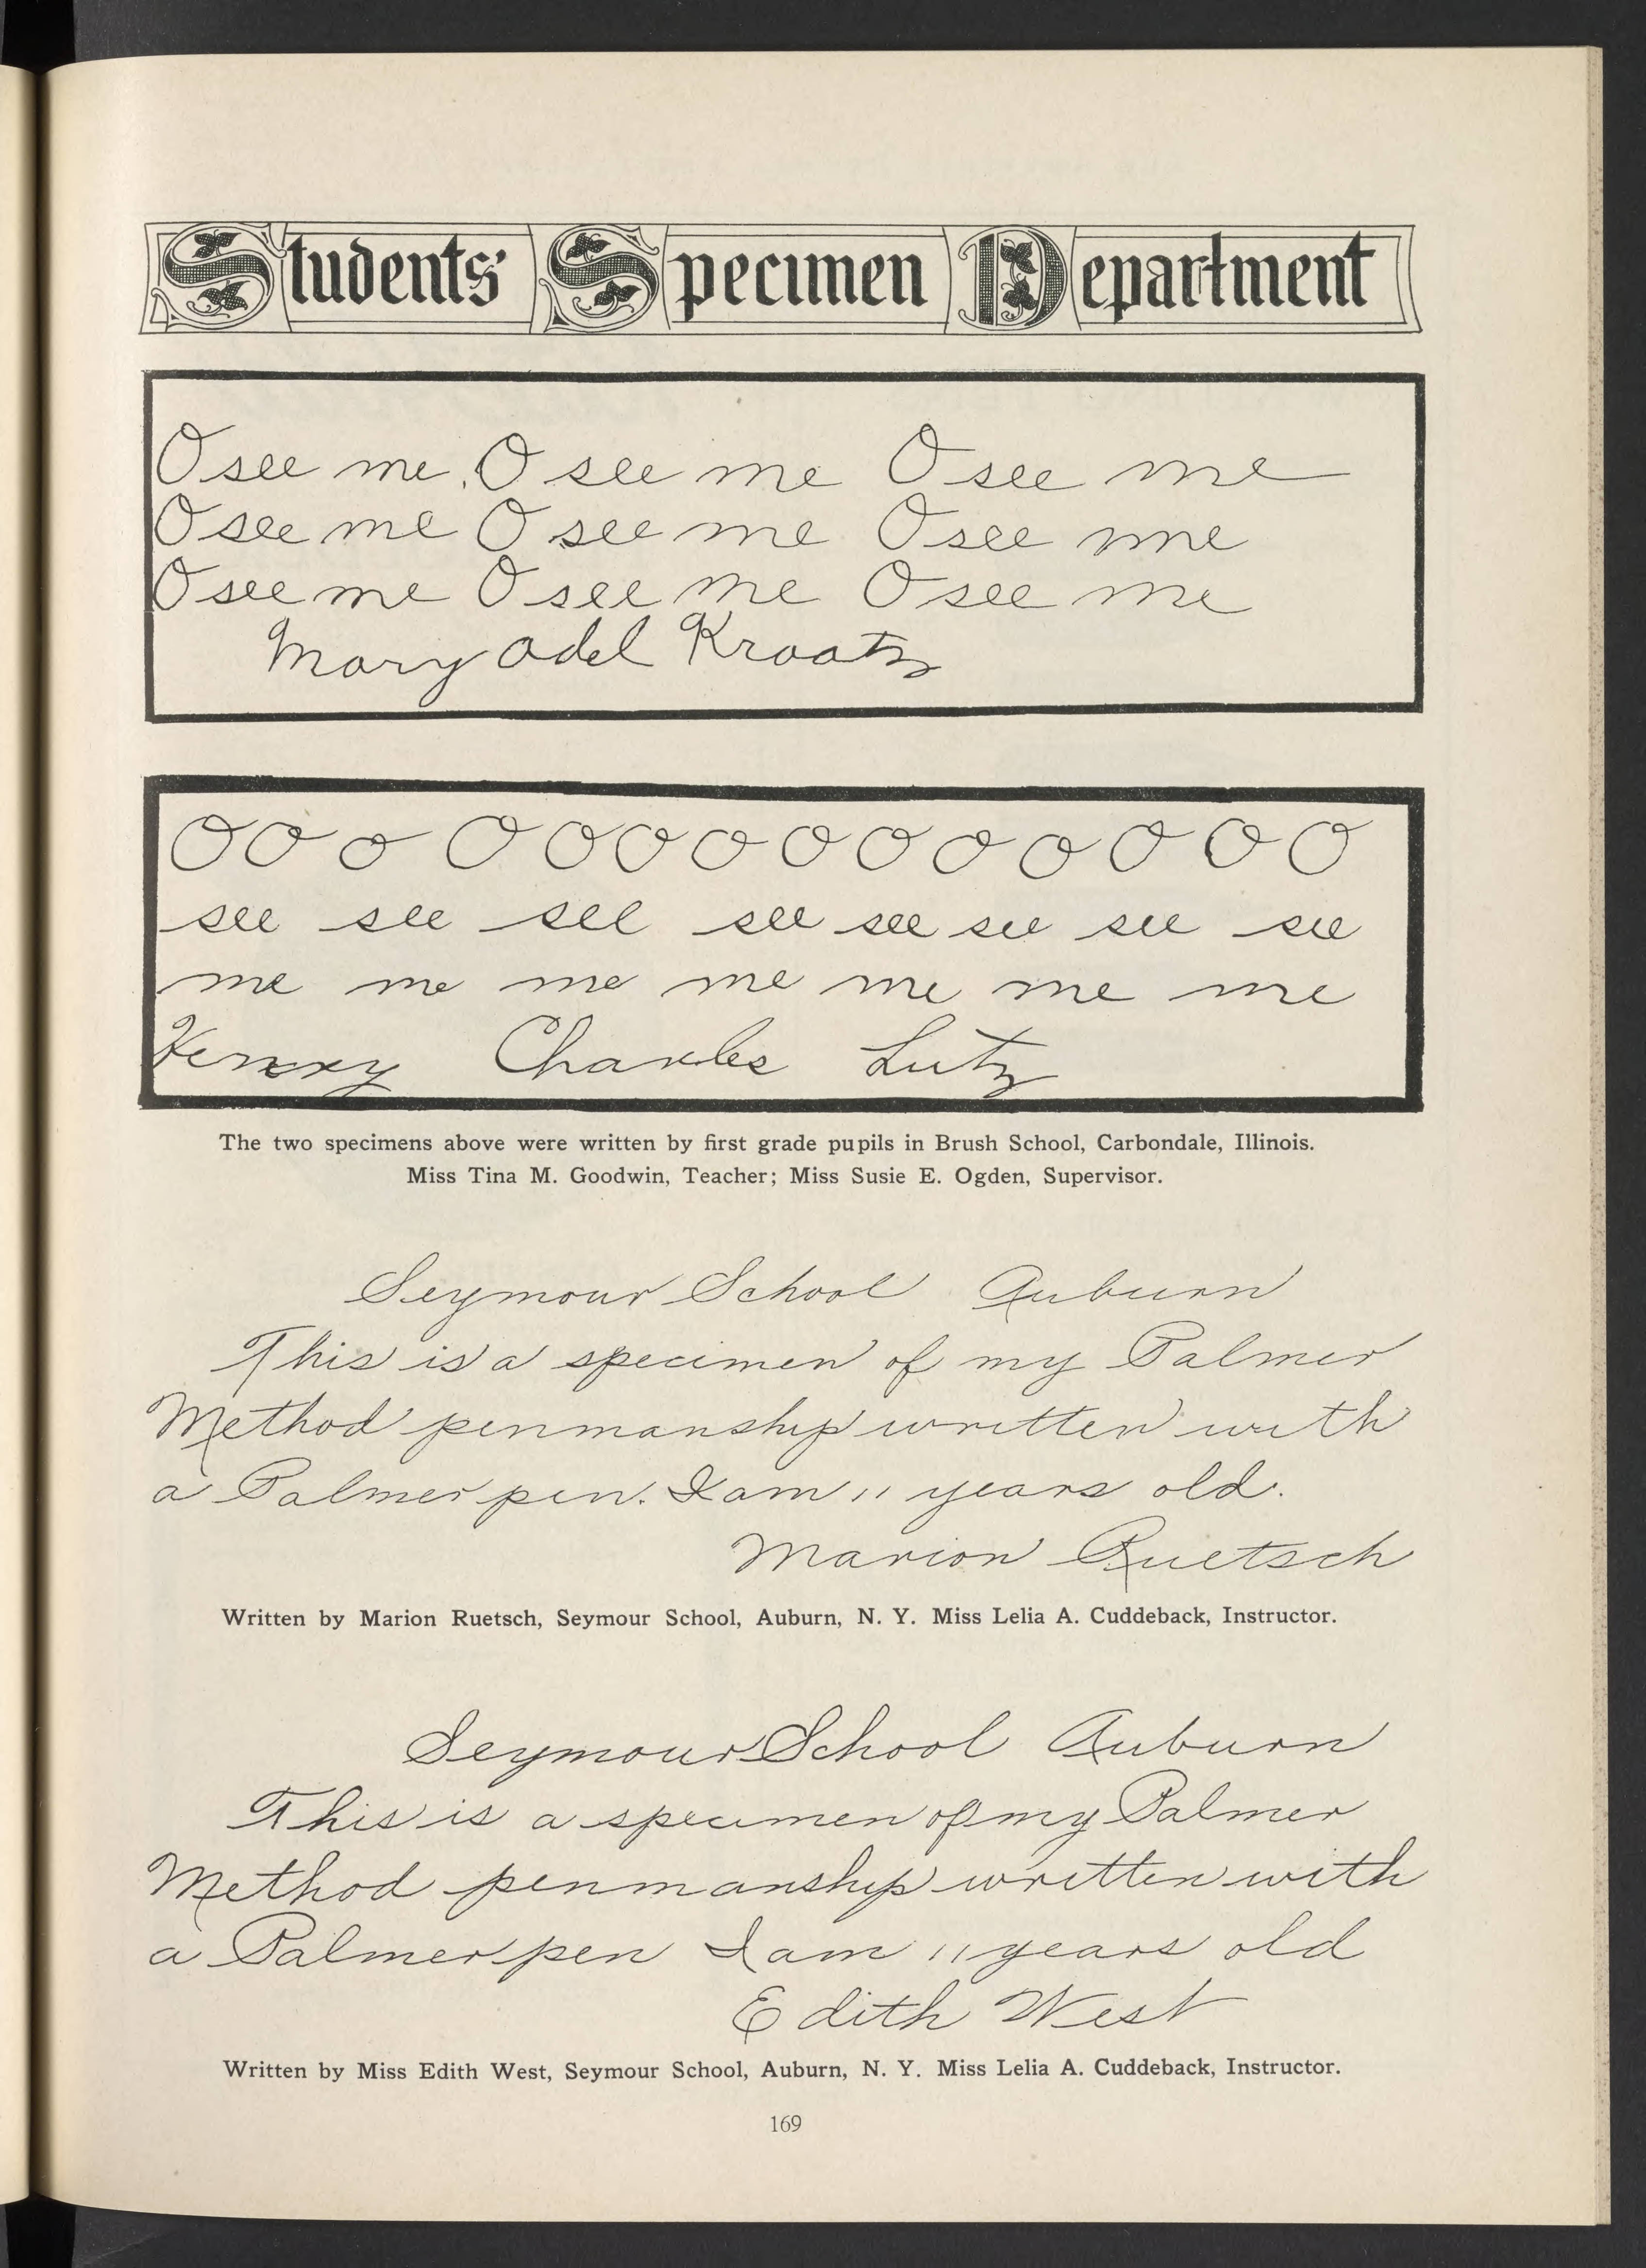 Students' Specimen Department
O see me, O see me O see me
O see me O see me O see me
O see me O see me O see me
Mary Odel Kraatz
O O O O O O O O O O O O O O
see see see see see see see see
me me me me me me me
Henry Charles Lutz
The two specimens above were written by first grade pupils in Brush School, Carbondale, Illinois.
Miss Tina M. Goodwin, Teacher; Miss Susie E. Ogden, Supervisor.
Seymour School Auburn
This is a specimen of my Palmer
Method penmanship written with
a Palmer pen. I am 11 years old.
Marion Ruetsch
Written by Marion Ruetsch, Seymour School, Auburn, N. Y. Miss Lelia A. Cuddeback, Instructor.
Seymour School Auburn
This is a specimen of my Palmer
Method penmanship written with
a Palmer pen I am 11 years old
Edith West
Written by Miss Edith West, Seymour School, Auburn, N. Y. Miss Lelia A. Cuddeback, Instructor.
169